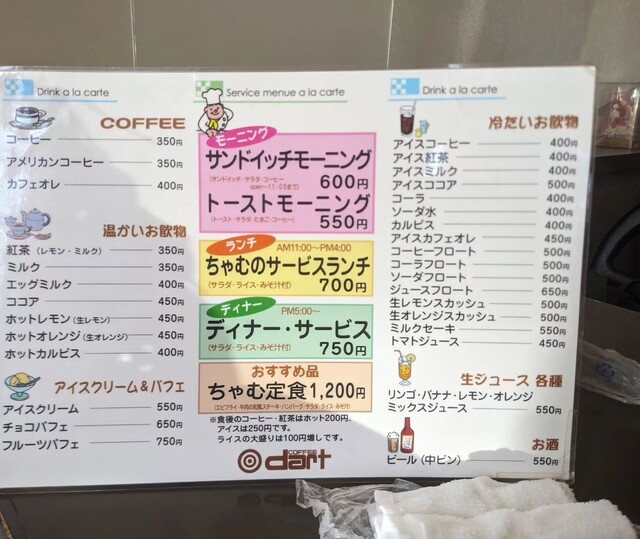 Drink a la carte
COFFEE
コーヒー 350円
アメリカンコーヒー 350円
カフェオレ 400円
温かいお飲物
紅茶 (レモン・ミルク) 350円
ミルク 350円
エッグミルク 400円
ココア 450円
ホットレモン (生レモン) 450円
ホットオレンジ (生オレンジ) 450円
ホットカルピス 400円
アイスクリーム&パフェ
アイスクリーム 550円
チョコパフェ 650円
フルーツパフェ 750円
Service menue a la carte
モーニング
サンドイッチモーニング
(サンドイッチ・サラダ・コーヒー
open~11:00まで)
600円
トーストモーニング
(トースト・サラダ・たまご・コーヒー) 550円
ランチ AM11:00~PM4:00
ちゃむのサービスランチ
(サラダ・ライス・みそ汁付) 700円
ディナー PM5:00~
ディナー・サービス
(サラダ・ライス・みそ汁付) 750円
おすすめ品
ちゃむ定食1,200円
(エビフライ・牛肉の和風ステーキ・ハンバーグ・サラダ・ライス・みそ汁)
※食後のコーヒー・紅茶はホット200円、
アイスは250円です。
ライスの大盛りは100円増しです。
COFFEE
dart
Drink a la carte
冷たいお飲物
アイスコーヒー 400円
アイス紅茶 400円
アイスミルク 400円
アイスココア 500円
コーラ 400円
ソーダ水 400円
カルピス 400円
アイスカフェオレ 450円
コーヒーフロート 500円
コーラフロート 500円
ソーダフロート 500円
ジュースフロート 650円
生レモンスカッシュ 500円
生オレンジスカッシュ 500円
ミルクセーキ 550円
トマトジュース 450円
生ジュース 各種
リンゴ・バナナ・レモン・オレンジ
ミックスジュース 550円
お酒
ビール (中ビン) 550円